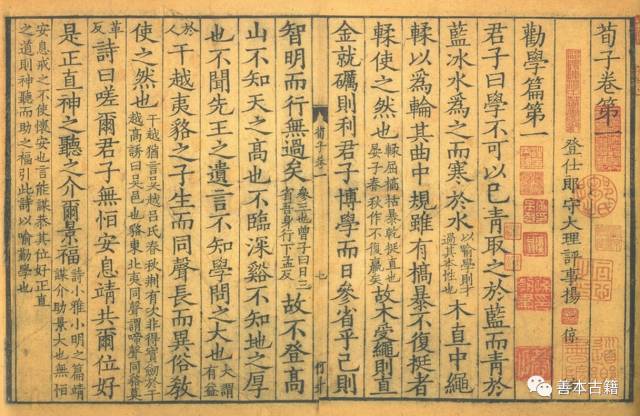 荀子卷第一
登仕郎守大理評事楊 倞
勸學篇第一
君子曰學不可以已青取之於藍而青於
藍冰水爲之而寒於水以喻學則才過其本性也木直中繩
輮以爲輪其曲中規雖有槁暴不復挺者
輮使之然也輮屈槁枯暴乾挺直也晏子春秋作不復贏矣故木受繩則直
金就礪則利君子博學而日參省乎己則
荀子卷一
智明而行無過矣參三也曾子曰日三省吾身行下孟反故不登高
山不知天之高也不臨深谿不知地之厚
也不聞先王之遺言不知學問之大也大謂有益
於人干越夷貉之子生而同聲長而異俗教
使之然也干越猶言吳越呂氏春秋荊有次非得寶劒於干越高誘曰吳邑也貉東北夷同聲謂啼聲同貉莫
革反詩曰嗟爾君子無恒安息靖共爾位好
是正直神之聽之介爾景福詩小雅小明之篇靖謀介助景大也無恒
安息戒之不使懷安也言能謀恭其位好正直之道則神聽而助之福引此詩以喻勤學也
善本古籍